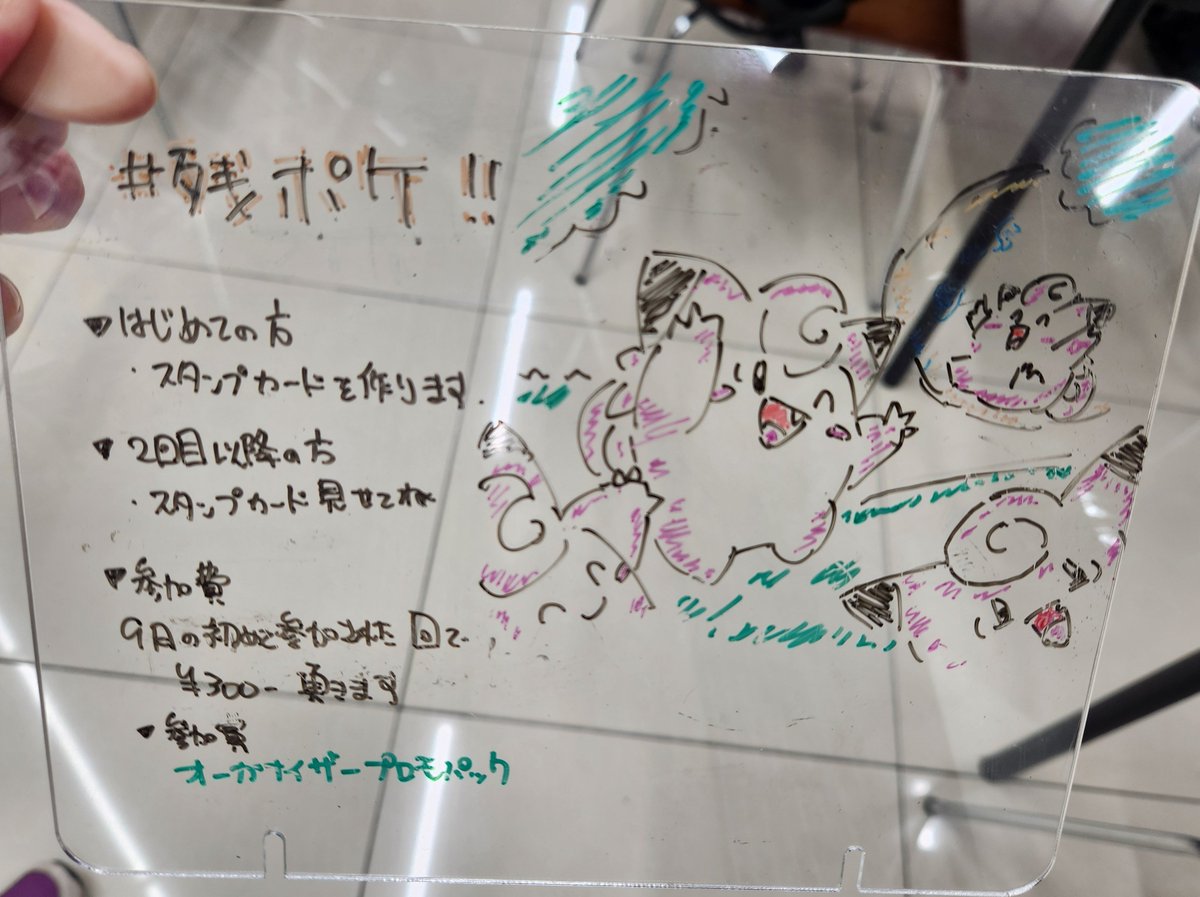 #残ポケ!!
▼はじめての方
・スタンプカードを作ります.
▼2回目以降の方
・スタンプカード見せてネ
▼参加費
9月の初めて参加された回で
¥300-頂きます
▼参加賞
オーガナイザープロモパック